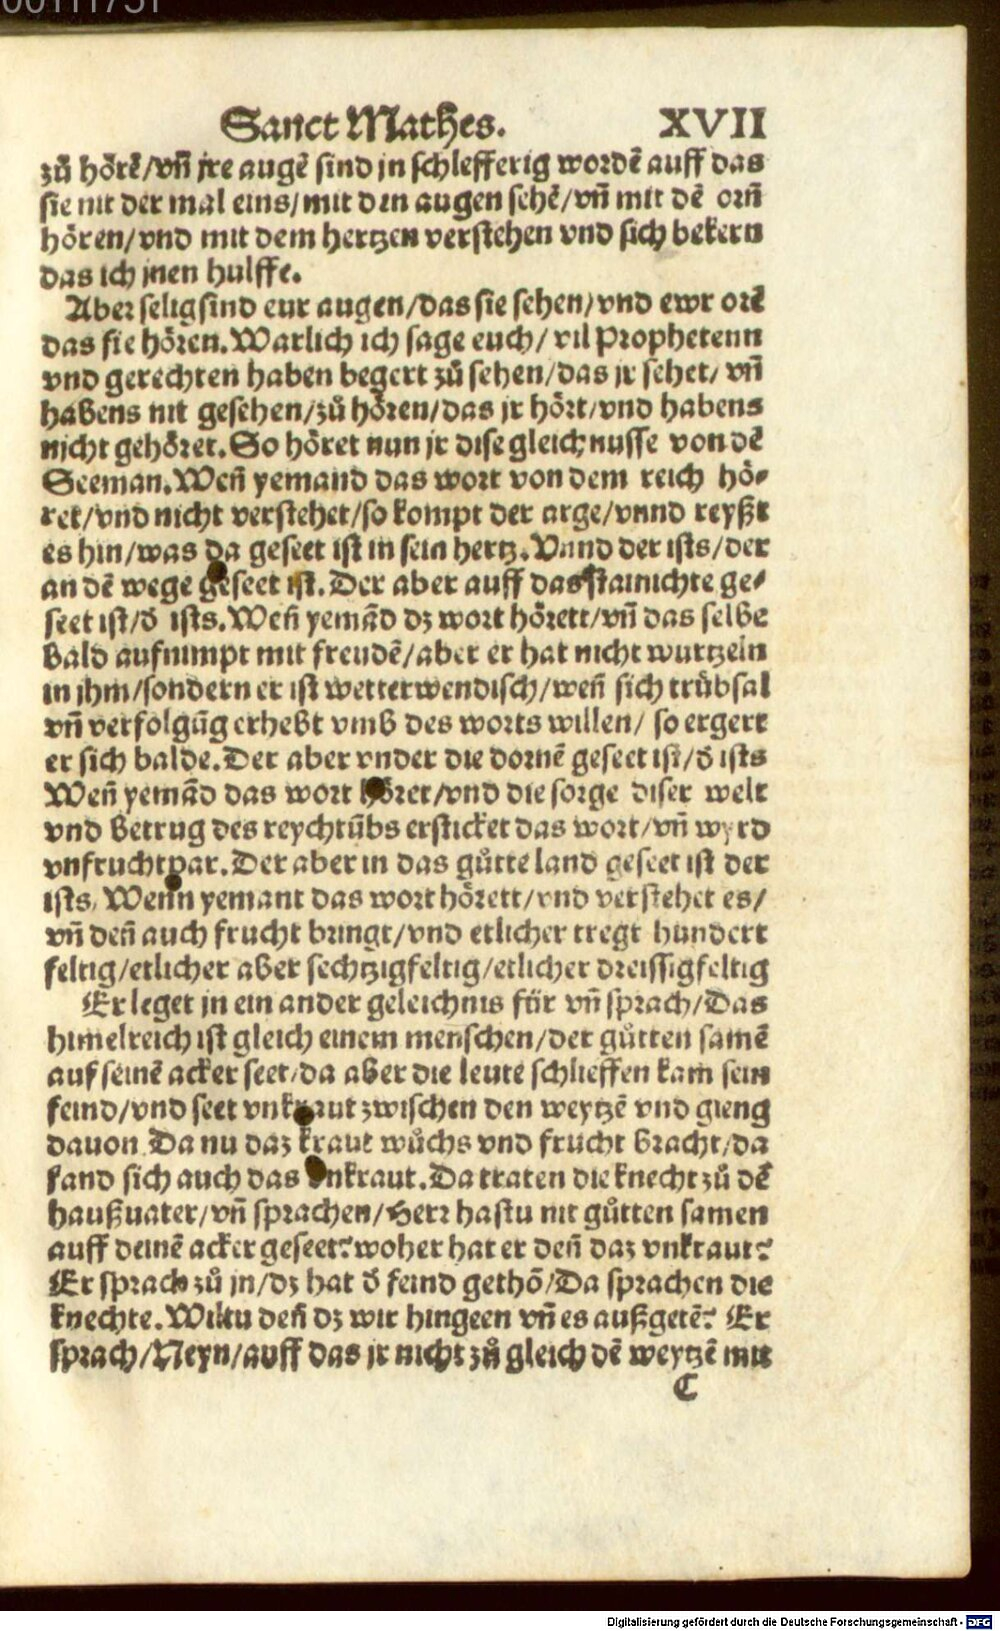 00111731
Sanct Mathes. XVII
zů hörē/vñ jre augē sind jn schlefferig wordē auff das
sie nit der mal eins/mit den augen sehē/vñ mit dē orñ
hören/vnd mit dem hertzen verstehen vnd sich bekern
das ich jnen hulffe.
Aber selig sind eur augen/das sie sehen/vnd ewr orē
das sie hören. Warlich ich sage euch/ vil Prophetenn
vnd gerechten haben begert zů sehen/das jr sehet/ vñ
habens nit gesehen/zů hören/das jr hört/vnd habens
nicht gehöret. So höret nun jr dise gleichnusse von dē
Seeman. Weñ yemand das wort von dem reich hö-
ret/vnd nicht verstehet/so kompt der arge/vnnd reyßt
es hin/was da geseet ist in sein hertz. Vnnd der ists/der
an dē wege geseet ist. Der aber auff das stainichte ge-
seet ist/ď ists. Weñ yemãd dz wort hörett/vñ das selbe
bald aufnimpt mit freudē/aber er hat nicht wurtzeln
in jhm/sondern er ist wetterwendisch/weñ sich trübsal
vñ verfolgũg erhebt vmb des worts willen/ so ergert
er sich balde. Der aber vnder die dornē geseet ist/ď ists
Weñ yemãd das wort höret/vnd die sorge diser welt
vnd betrug des reychtũbs ersticket das wort/vñ wyrd
vnfruchtpar. Der aber in das gůtte land geseet ist der
ists, Wenn yemant das wort hörett/vnd verstehet es/
vñ deñ auch frucht bringt/vnd etlicher tregt hundert
feltig/etlicher aber sechtzigfeltig/etlicher dreissigfeltig
Er leget jn ein ander geleichnis für vñ sprach/Das
himelreich ist gleich einem menschen/der gůtten samē
auf seinē acker seet/da aber die leute schlieffen kam sein
feind/vnd seet vnkraut zwischen den weytzē vnd gieng
dauon. Da nu daz kraut wůchs vnd frucht bracht/da
fand sich auch das vnkraut. Da traten die knecht zů dē
haußuater/vñ sprachen/Herr hastu nit gůtten samen
auff deinē acker geseet? woher hat er deñ daz vnkraut?
Er sprach zů jn/dz hat ď feind gethõ/Da sprachen die
knechte. Wiltu deñ dz wir hingeen vñ es außgetē? Er
sprach/Neyn/auff das jr nicht zů gleich dē weytzē mit
C
Digitalisierung gefördert durch die Deutsche Forschungsgemeinschaft - DFG